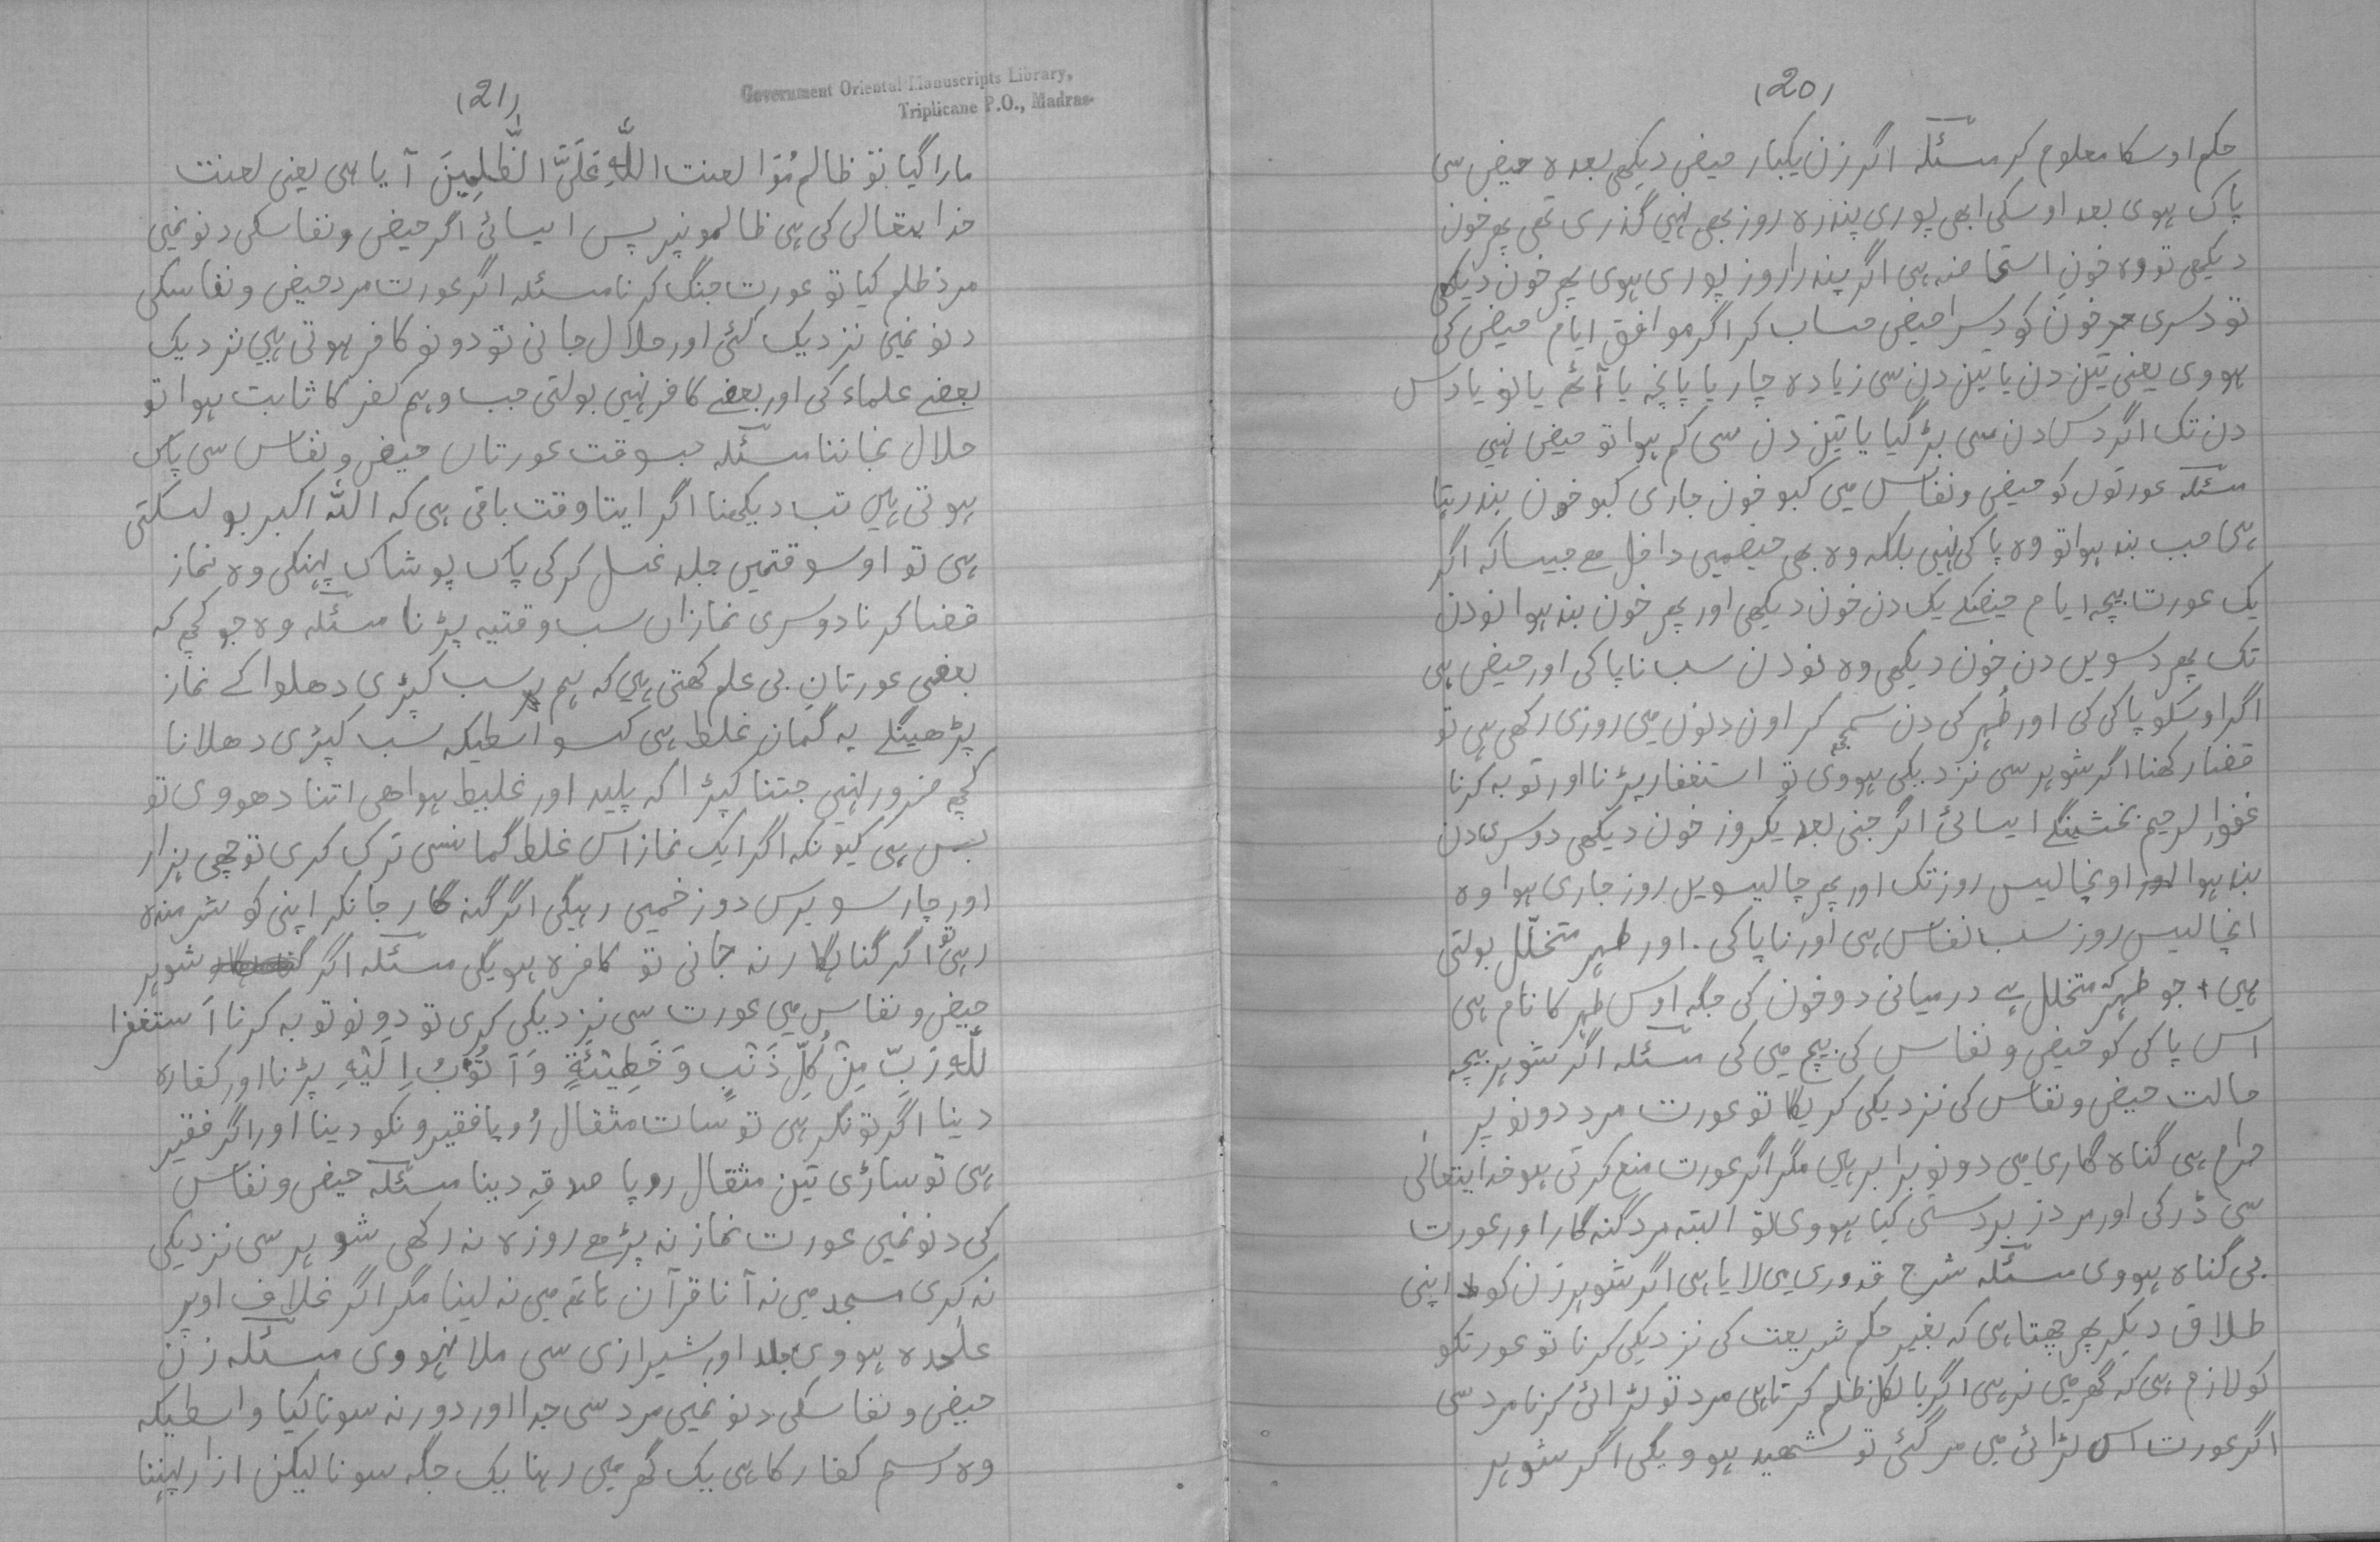 (20)
حکم اوسکا معلوم کر مسئلہ اگر زن یکبار حیض دیکھی بعدہ حیض سی
پاک ہوی بعد اوسکی ابھی پوری پندرہ روز بھی نہیں گذری تھی پھر خون
دیکھی تو وہ خونِ استحاضہ ہی اگر پندرا روز پوری ہوی پھر خون دیکھی
تو دسری خون کو دسرا حیض حساب کر اگر موافق ایام حیض کی
ہووی یعنی تین دن یا تین دن سی زیادہ چار یا پانچہ یا آٹھ یا نو یا دس
دن تک اگر دس دن سی بڑ گیا یا تین دن سی کم ہوا تو حیض نہیں
مسئلہ عورتوں کو حیض و نفاس میں کبو خون جاری کبو خون بند رہتا
ہی جب بند ہوا تو وہ پاکی نہیں بلکہ وہ بھی حیضمیں داخل ھے جیسا کہ اگر
یک عورت بیچہ ایام حیضکے یک دن خون دیکھی اور پھر خون بند ہوا نو دن
تک پھر دسویں دن خون دیکھی وہ نو دن سب ناپاکی اور حیض ہی
اگر اوسکو پاکی کی اور طُہر کی دن سمجھ کر اون دنوں میں روزی رکھی ہی تو
قضا رکھنا اگر شوہر سی نزدیکی ہووی تو استغفار پڑنا اور توبہ کرنا
غفور الرحیم بخشینگے ایسائی اگر جنی بعد یکروز خون دیکھی دوسری دن
بند ہوا اور اونچالیس روز تک اور پھر چالیسویں روز جاری ہوا وہ
انچالیس روز سب نفاس ہی اور ناپاکی . اور طہر متخلّل بولتی
ہیں جو طہر کہ متخلل ہے درمیانی دو خون کی جگہ اوس طہر کا نام ہی
اس پاکی کو حیض و نفاس کی بیچ میں کی مسئلہ اگر شوہر بیچہ
حالت حیض و نفاس کی نزدیکی کریگا تو عورت مرد دونو پر
حرام ہی گناہ گاری میں دونو برابر ہیں مگر اگر عورت منع کرتی ہو خدایتعالیٰ
سی ڈر کی اور مرد زبردستی کیا ہووی تو البتہ مرد گنہ گار اور عورت
بی گناہ ہووی مسئلہ شرح قدوری میں لایا ہی اگر شوہر زن کو اپنی
طلاق دیکر پھر چھپتا ہی کہ بغیر حکم شریعت کی نزدیکی کرنا تو عورتکو
کو لازم ہی کہ گھر میں نرہی اگر بالکل ظلم کرتا ہی مرد تو لڑائی کرنا مرد سی
اگر عورت اس لڑائی میں مر گئی تو شھید ہوویگی اگر شوہر
(21)
Government Oriental Manuscripts Library,
Triplicane P.O., Madras.
مارا گیا تو ظالم مُوَا لعنت اللّٰہِ عَلَیَّ الظّٰلِمِینَ آیا ہی یعنی لعنت
خدایتعالی کی ہی ظالمونپر پس ایسائی اگر حیض و نفاسکی دنونمیں
مرد ظلم کیا تو عورت جنگ کرنا مسئلہ اگر عورت مرد حیض و نفاسکی
دنونمیں نزدیک گئی اور حلال جانی تو دونو کافر ہوتی ہیں نزدیک
بعضے علماء کی اور بعضے کافر نہیں بولتی جب وہم کفر کا ثابت ہوا تو
حلال نجاننا مسئلہ جسوقت عورتاں حیض و نفاس سی پاک
ہوتی ہیں تب دیکھنا اگر ایتا وقت باقی ہی کہ اللّٰہ اکبر بولسکتی
ہی تو اوسوقتمیں جلد غسل کر کی پاک پوشاک پہنکی وہ نماز
قضا کرنا دوسری نمازاں سب وقتیہ پڑنا مسئلہ وہ جو کچھ کہ
بعضی عورتاں بی علم کھتی ہیں کہ ہم سب کپڑی دھلوا کے نماز
پڑھینگے یہ گمان غلط ہی کسواسطیکہ سب کپڑی دھلانا
کچھ ضرور نہیں جتنا کپڑا کہ پلید اور غلیظ ہوا ھی اتنا دھووی تو
بس ہی کیونکہ اگر ایک نماز اس غلط گمانسی ترک کری تو چھی ہزار
اور چار سو برس دوزخمیں رہیگی اگر گنہ گار جانکر اپنی کو شرمندہ
رہی تو اگر گناہگار نہ جانی تو کافرہ ہویگی مسئلہ اگر شوہر
حیض و نفاس میں عورت سی نزدیکی کری تو دونو توبہ کرنا اَستغفرا
للّٰہِ رَبِّ مِنْ کُلِّ ذَنْبٍ وَّ خَطِیْئَۃٍ وَ اَتُوْبُ اِلَیْہِ پڑنا اور کفارہ
دینا اگر تونگر ہی تو سات مثقال رُوپا فقیرونکو دینا اور اگر فقیر
ہی تو ساڑی تین مثقال روپا صدقہ دینا مسئلہ حیض و نفاس
کی دنونمیں عورت نماز نہ پڑھے روزہ نہ رکھی شوہر سی نزدیکی
نہ کری مسجد میں نہ آنا قرآن ہاتھ میں نہ لینا مگر اگر غلاف اوپر
علٰحدہ ہووی جلد اور شیرازی سی ملا نہووی مسئلہ زن
حیض و نفاسکی دنونمیں مرد سی جدا اور دور نہ سونا کیا واسطیکہ
وہ رسم کفار کا ہی یک گھر میں رہنا یک جگہ سونا لیکن ازار پہننا